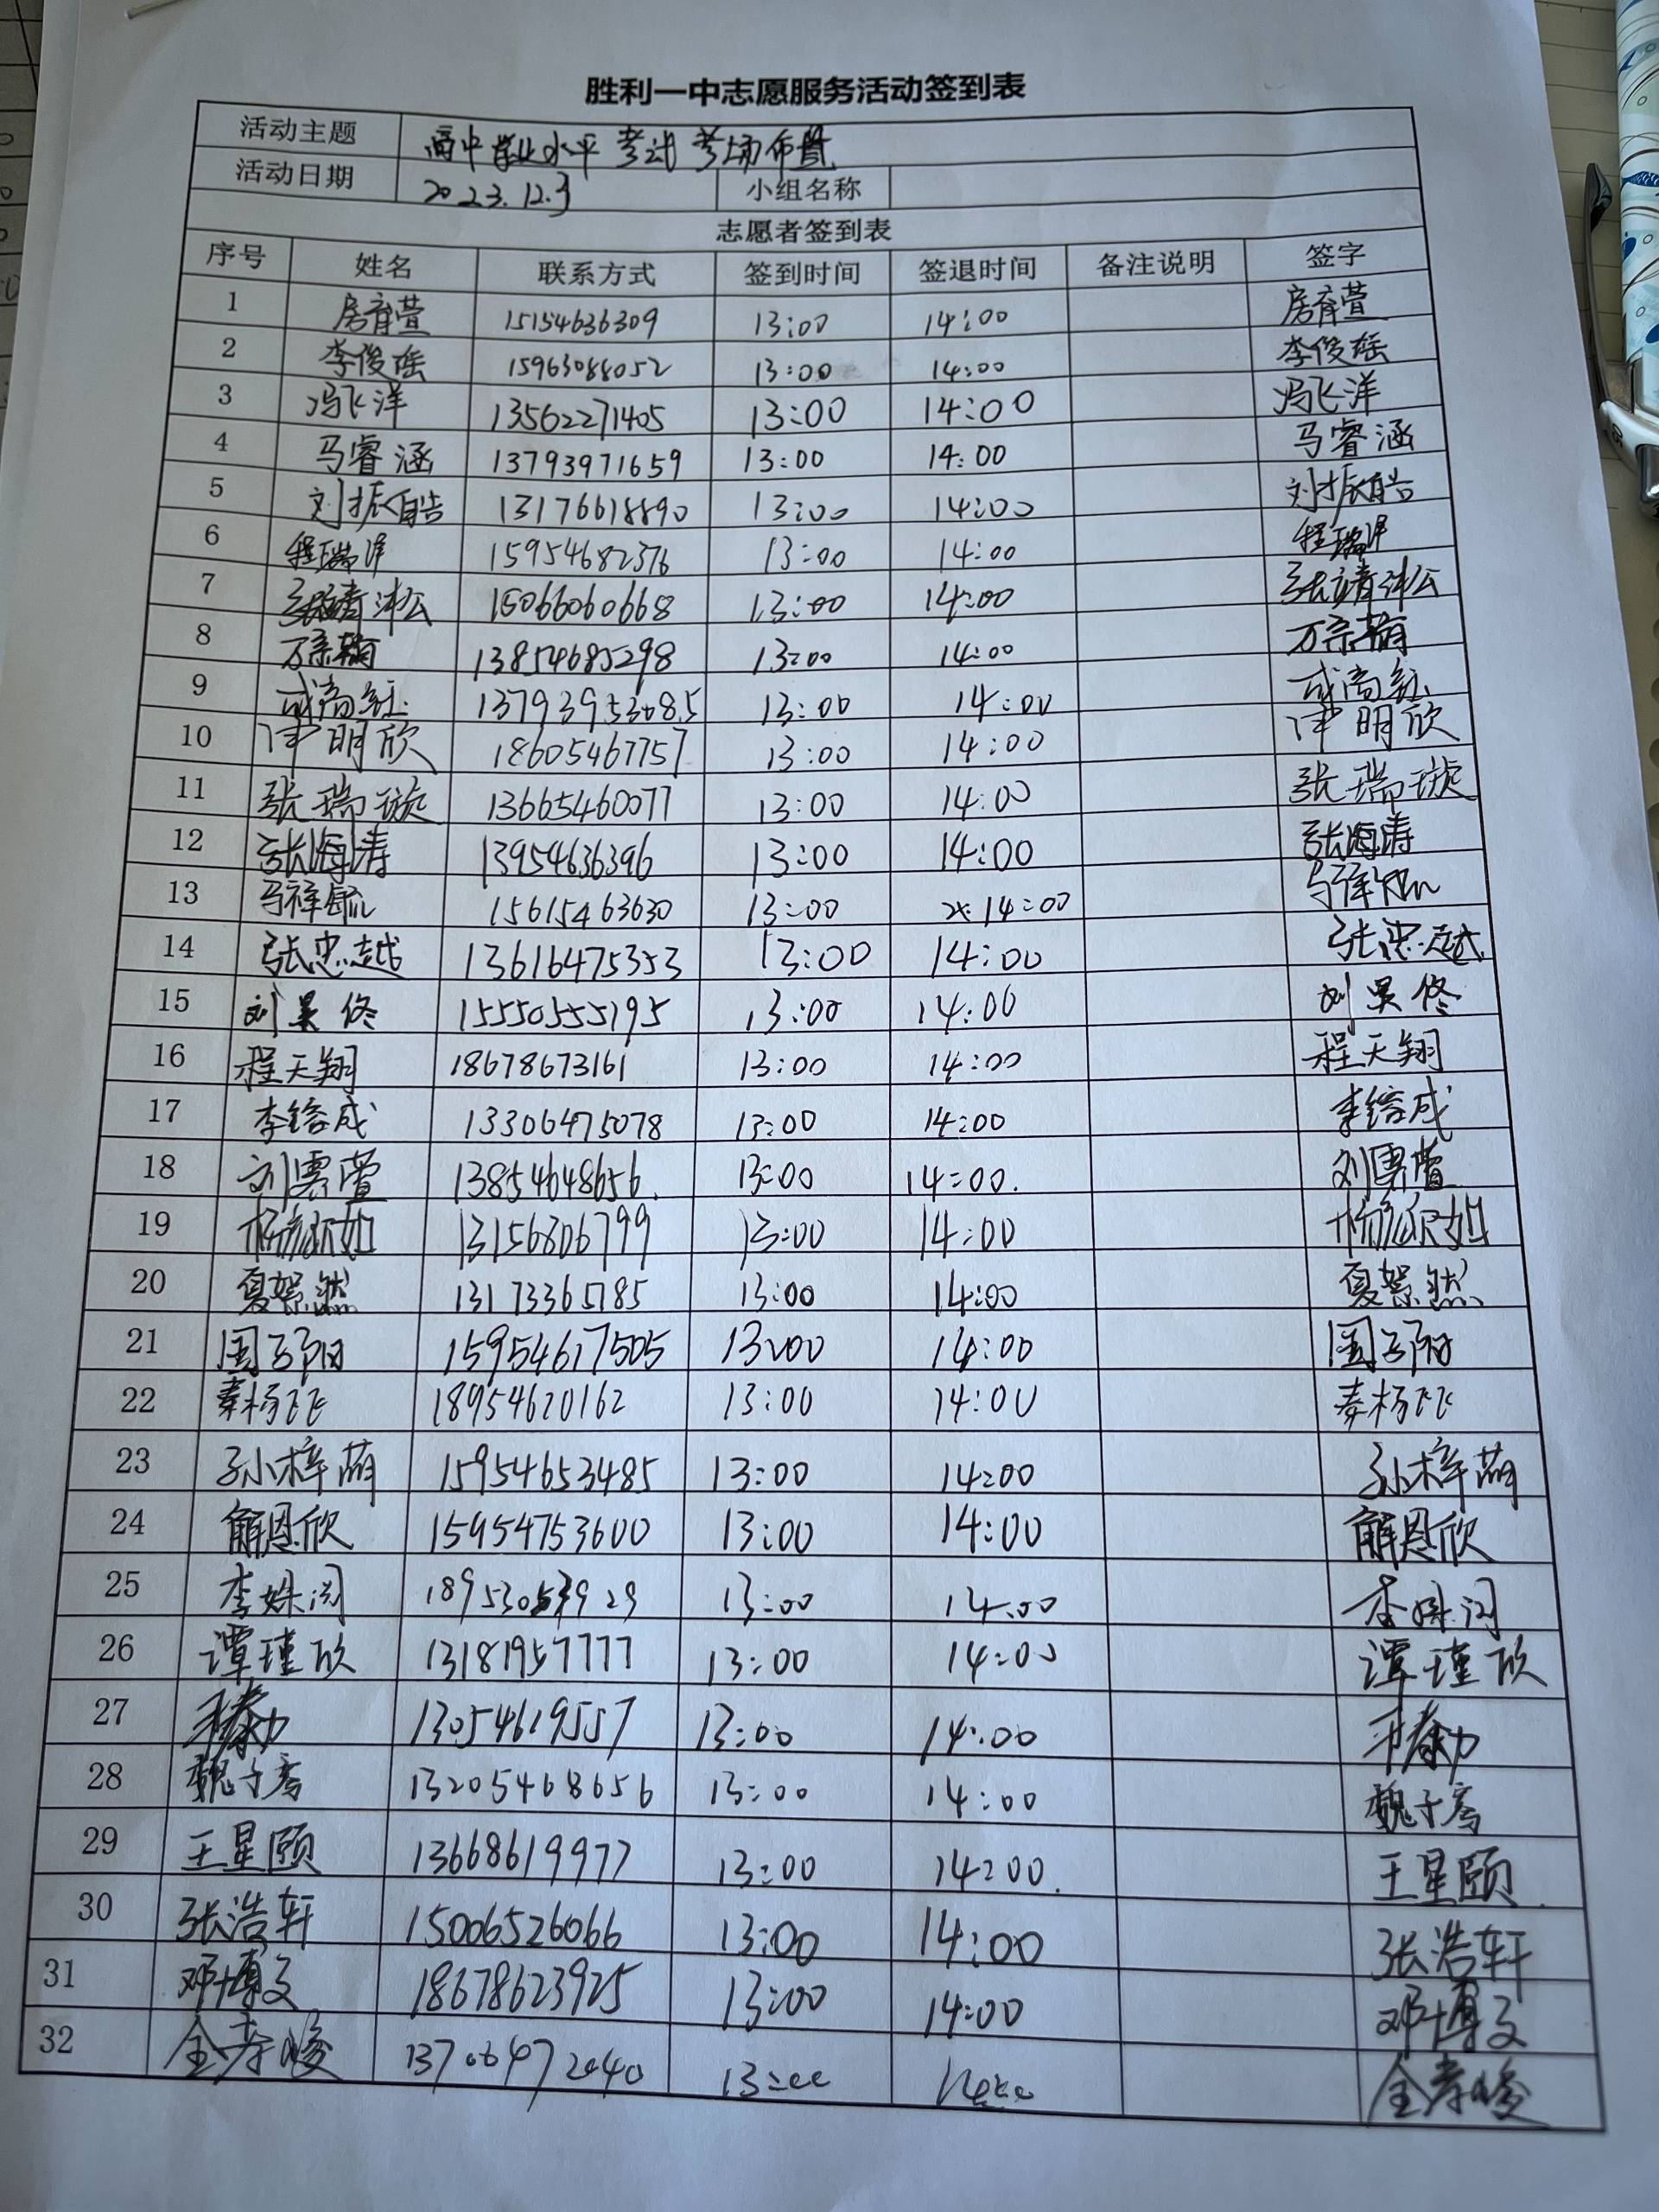 胜利一中志愿服务活动签到表
活动主题 高中学业水平考试考场布置
活动日期 2023.12.3 小组名称
志愿者签到表
序号 姓名 联系方式 签到时间 签退时间 备注说明 签字
1 房育萱 15154636309 13:00 14:00 房育萱
2 李俊瑶 15963088052 13:00 14:00 李俊瑶
3 冯飞洋 13562271405 13:00 14:00 冯飞洋
4 马睿涵 13793971659 13:00 14:00 马睿涵
5 刘振皓 13176618890 13:00 14:00 刘振皓
6 程瑞洋 15954682376 13:00 14:00 程瑞洋
7 15066060668 13:00 14:00
8 万宗翰 13854685298 13:00 14:00 万宗翰
9 13793953085 13:00 14:00
10 明欣 18605467757 13:00 14:00 明欣
11 张瑞璇 13665460077 13:00 14:00 张瑞璇
12 张海涛 13954636396 13:00 14:00 张海涛
13 马祥毓 15615463630 13:00 14:00 马祥毓
14 张忠越 13616475353 13:00 14:00 张忠越
15 刘昊佟 15550555195 13:00 14:00 刘昊佟
16 程天翔 18678673161 13:00 14:00 程天翔
17 李镕成 13306475078 13:00 14:00 李镕成
18 刘雲萱 13854648656 13:00 14:00 刘雲萱
19 13156806799 13:00 14:00
20 夏絮然 13173365785 13:00 14:00 夏絮然
21 周子阳 15954617505 13:00 14:00 周子阳
22 秦杨飞 18954620162 13:00 14:00 秦杨飞
23 孙梓萌 15954653485 13:00 14:00 孙梓萌
24 解恩欣 15954753600 13:00 14:00 解恩欣
25 李姝闵 13:00 14:00 李姝闵
26 谭瑾欣 13181957777 13:00 14:00 谭瑾欣
27 13054619557 13:00 14:00
28 魏子骞 13205468656 13:00 14:00 魏子骞
29 王星颐 13668619977 13:00 14:00 王星颐
30 张浩轩 15006526066 13:00 14:00 张浩轩
31 邓博文 18678623925 13:00 14:00 邓博文
32 金孝峻 13706472040 13:00 14:00 金孝峻